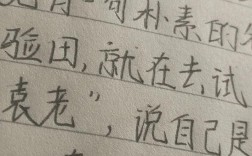 一句朴素的
验田,就在去,试
袁老",说自己是